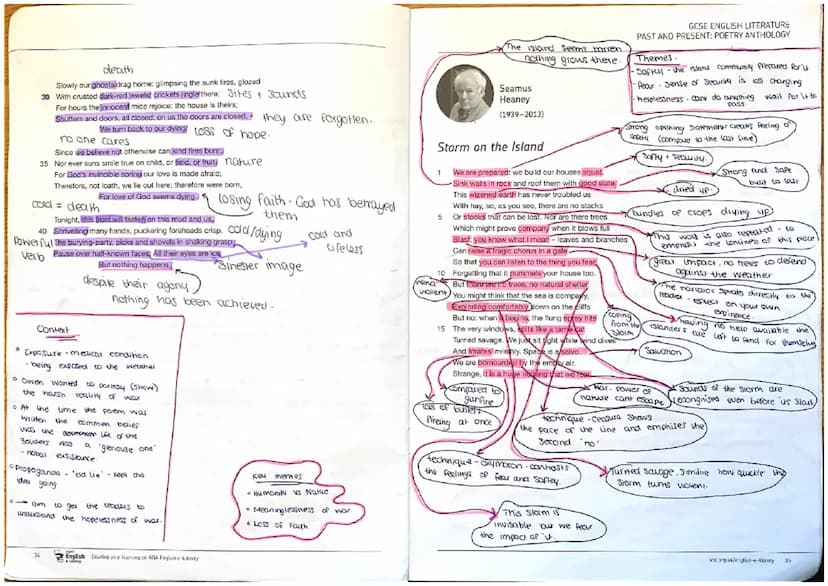 death
Slowly our ghosts drag home: glimpsing the sunk fires, glozed
30 With crusted dark-red jewels; crickets jingle there; Sites + sounds
For hours the innocent mice rejoice: the house is theirs;
Shutters and doors, all closed: on us the doors are closed, - they are forgotten.
We turn back to our dying. loss of hope.
no one cares
Since we believe not otherwise can kind fires burn;
35 Nor ever suns smile true on child, or field, or fruit. nature
For God's invincible spring our love is made afraid;
Therefore, not loath, we lie out here; therefore were born,
For love of God seems dying. losing faith - God has betrayed them
cold = death
Tonight, this frost will fasten on this mud and us,
40 Shrivelling many hands, puckering foreheads crisp. cold/dying
Powerful verb
The burying-party, picks and shovels in shaking grasp,
Pause over half-known faces. All their eyes are ice, cold and lifeless
But nothing happens. sinester image
despite their agony nothing has been achieved.
Context
Exposure - medical condition
- being exposed to the weather
Owen wanted to portray (show)
the harsh reality of war
At the time the poem was
written the common belief
was the life of the
soldiers was a 'gloriouse one'
- nobal existance
Propoganda - 'old lie' - kept this
idea going
→ aim to get the readers to
understand the hopelessness of war.
Key themes
• Humanity vs Nature
• Meaninglessness of war
• Loss of Faith
34
English
Develop your learning on AQA English e-Library
GCSE ENGLISH LITERATURE
PAST AND PRESENT: POETRY ANTHOLOGY
The island seems barren
nothing grows there.
Themes -
- Safty - the island community prepared for it
- fear - sense of security is less changing
helplessness - cant do anything wait for it to
pass.
Seamus
Heaney
(1939–2013)
Storm on the Island
Strong opening statement creats feeling of
safty (compare to the last line)
Safty + Security.
Strong and safe
built to last
dried up.
1 We are prepared: we build our houses squat,
Sink walls in rock and roof them with good slate.
This wizened earth has never troubled us
With hay, so, as you see, there are no stacks
5 Or stooks that can be lost. Nor are there trees
Which might prove company when it blows full
Blast: you know what I mean – leaves and branches
Can raise a tragic chorus in a gale
So that you can listen to the thing you fear
10 Forgetting that it pummels your house too.
But there are no trees, no natural shelter.
You might think that the sea is company,
Exploding comfortably down on the cliffs
But no: when it begins, the flung spray hits
15 The very windows, spits like a tame cat
Turned savage. We just sit tight while wind dives
And strafes invisibly. Space is a salvo.
We are bombarded by the empty air.
Strange, it is a huge nothing that we fear.
bunches of crops drying up
This word is also repeated - to
emphasis the loneliness of this place
great impact, no trees to defend
against the weather
The narrator speaks directly to the
reader - reflect on your own
experience.
having no help available the
islanders are left to fend for themselves
violent
coming
from the
storm
compared to
gunfire
loss of bullets
fireing at once
nature cant escape
Sounds of the storm are
recognised even before it starts
technique - ceasura shows
the pace of the line and emphises the
second 'no'
technique - Oxymoron - contrasts
the feelings of fear and saftey.
Turned savage, simile how quickly the
storm turns violent.
This storm is
invisible but we fear
the impact of it.
aqa.org.uk/english-e-library
35